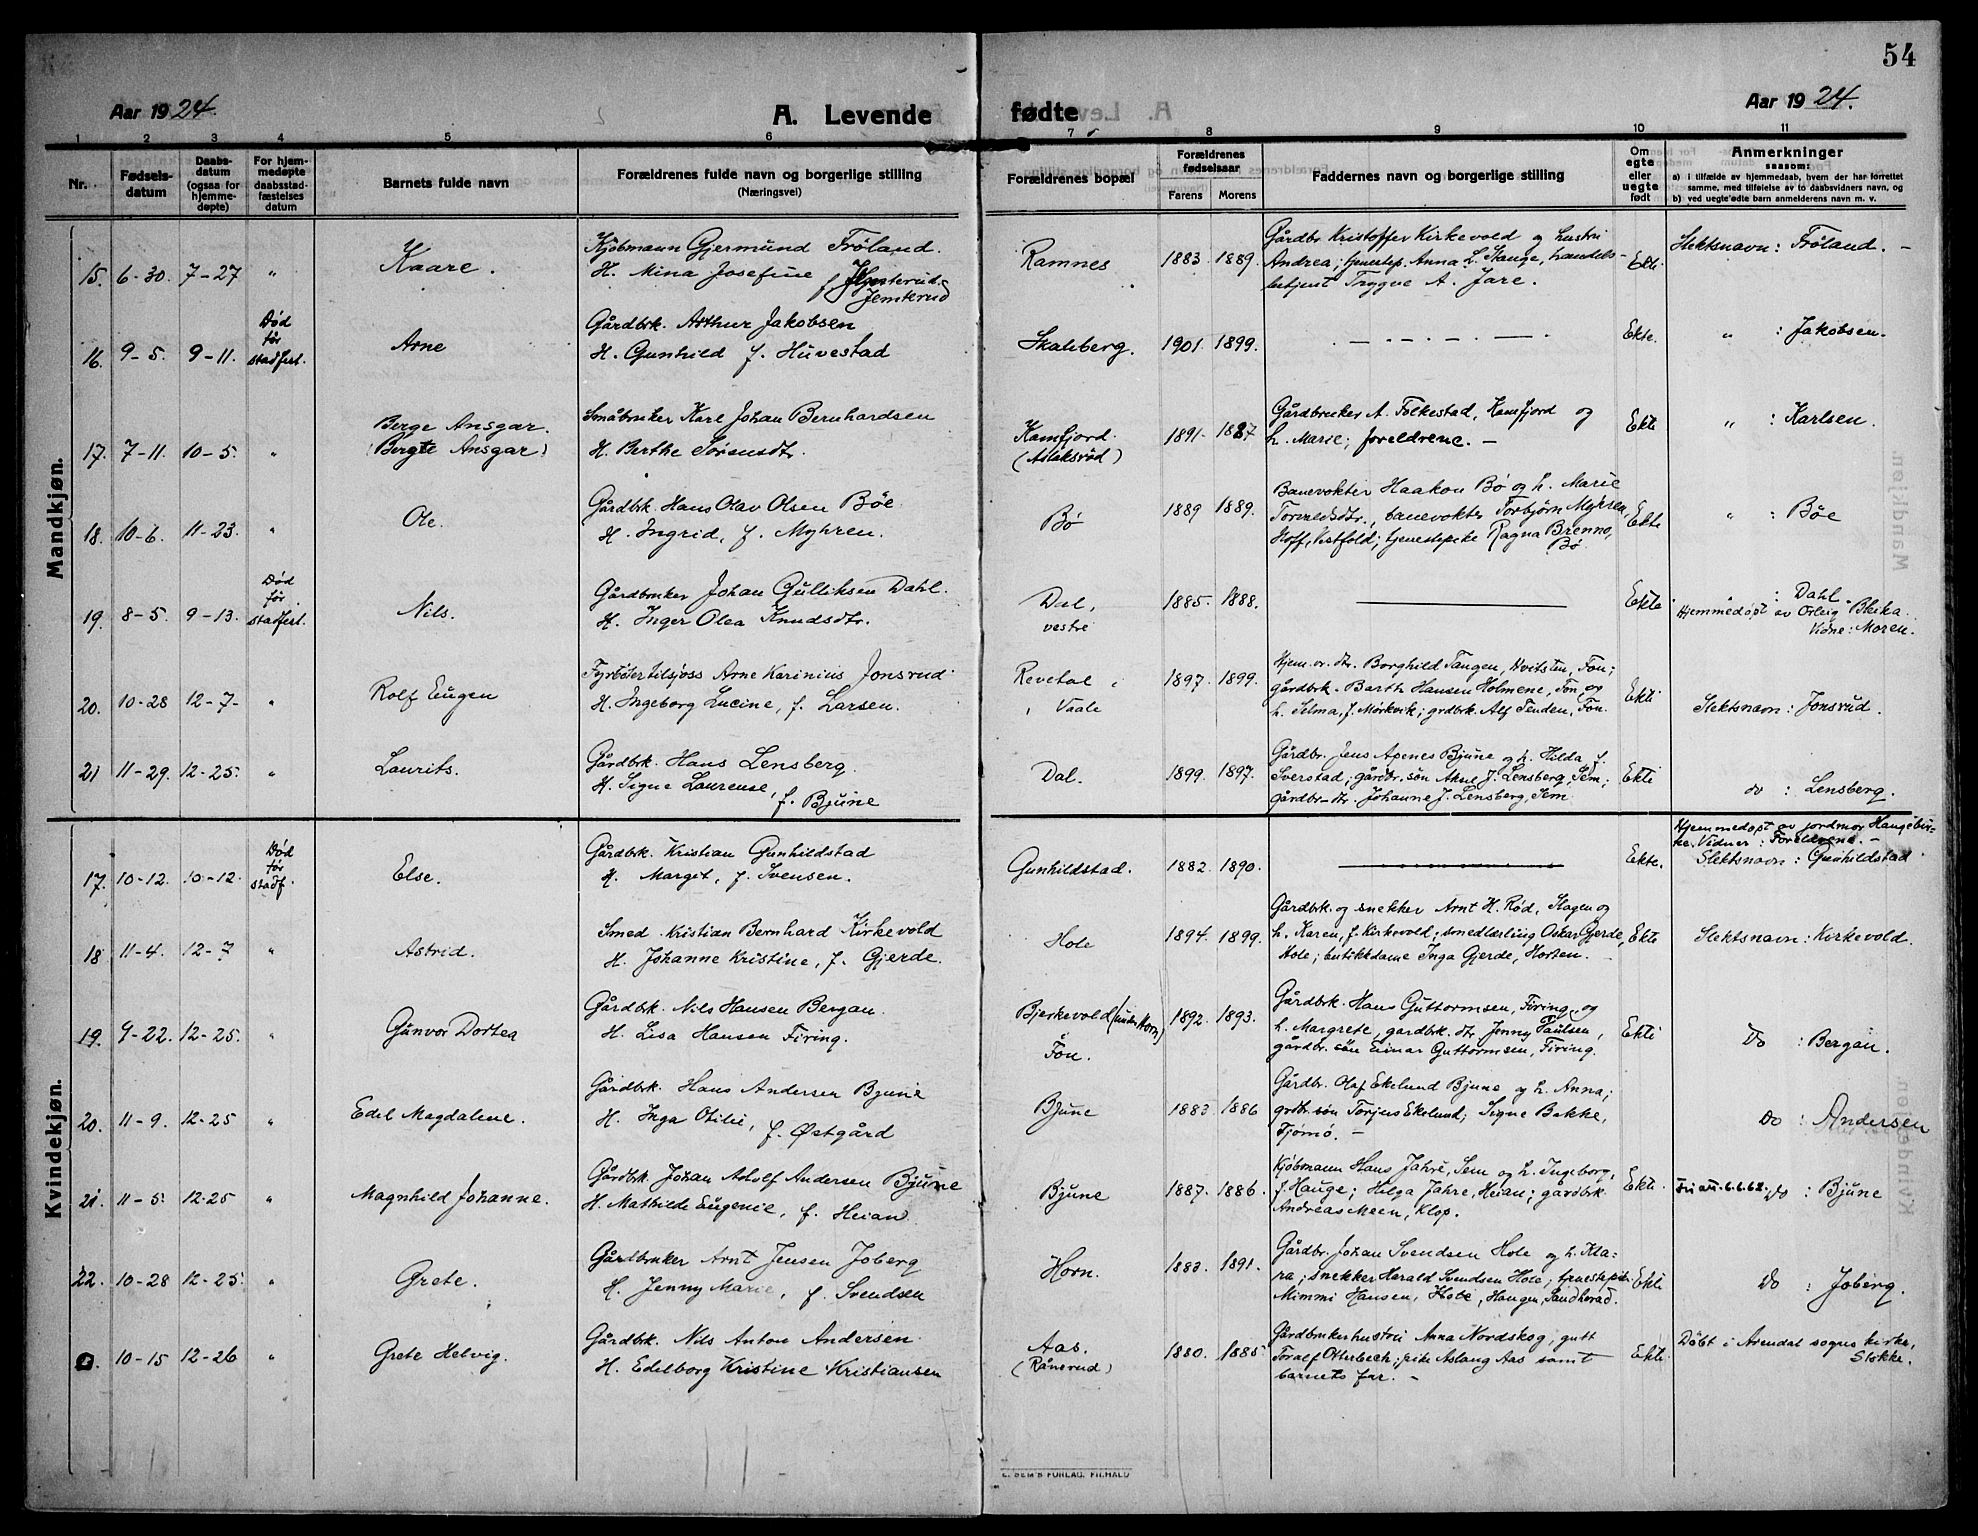 54
Aar 1924.
A. Levende
fødte
Aar 1924.
1 2 3 4 5 6 7 8 9 10 11
Nr.
Fødsels-
datum
Daabs-
datum
(ogsaa for
hjemme-
døpte)
For hjem-
medøpte
daabsstad-
fæstelses
datum
Barnets fulde navn
Forældrenes fulde navn og borgerlige stilling
(Næringsvei)
Forældrenes bopæl
Forældrenes
fødselsaar
Farens Morens
Faddernes navn og borgerlige stilling
Om
egte
eller
uegte
født
Anmerkninger
saasom:
a) i tilfælde av hjemmedaab, hvem der har forrettet
samme, med tilføielse av to daabsvidners navn, og
b) ved uegte fødte barn anmelderens navn m. v.
Mandkjøn.
15. 6-30. 7-27 "
Kaare.
Kjøbmann Gjermund Frøland.
H. Mina Josefine f. Hjemterud.
Jemterud
Ramnes
1883. 1889.
Gårdbr. Kristoffer Kirkevold og hustri
Andrea; tjenestep. Anna L. Stange, handels-
betjent Trygve A. Jare.
Ekte.
Slektsnavn: Frøland. -
16. 9-5. 9-11.
Død
før
stadfest.
Arne
Gårdbrk. Arthur Jakobsen
H. Gunhild f. Huvestad
Skaleberg. 1901. 1899.
Ekte.
" : Jakobsen.
17. 7-11. 10-5. "
Berge Ansgar.
(Bergte Ansgar)
Småbruker Karl Johan Bernhardsen
H. Berthe Sørensdtr.
Kamfjord.
(Aslaksrød)
1891. 1887
Gårdbruker A. Folkestad, Kamfjord og
h. Marie; foreldrene. -
Ekte
" : Karlsen.
18. 10-6. 11-23. "
Ole.
Gårdbrk. Hans Olav Olsen Bøe
H. Ingrid, f. Myhren.
Bø
1889 1889.
Banevokter Haakon Bø og h. Marie
Torvaldsdtr., banevokter Torbjørn Myhren,
Hoff, Vestfold; tjenestepike Ragna Brenno,
Bø
Ekte
" : Bøe
19. 8-5. 9-13.
Død
før
stadfest.
Nils.
Gårdbruker Johan Gulliksen Dahl.
H. Inger Olea Knudsdtr.
Dal,
vestre
1885. 1888.
Ekte
" : Dahl.
Hjemmedøpt av Orleig Bleika.
Vidne: Moren.
20. 10-28 12-7- "
Rolf Eugen
Fyrbøter tilsjøss Arne Karinius Jonsrud
H. Ingeborg Lucine, f. Larsen.
Revetal i
Vaale
1897. 1899.
Hjem.v. dtr. Borghild Tangen, Hvitsten, Fon;
gårdbrk. Barth Hansen Holmene, Fon og
h. Selma, f. Mørkvik; grdbrk. Alf Tenden, Fon.
Ekte
Slektsnavn: Jonsrud.
21 11-29. 12-25. "
Laurits.
Gårdbrk. Hans Lensberg.
H. Signe Laurense,
f. Bjune
Dal.
1899. 1897.
Gårdbr. Jens Agenes Bjune og h. Hilda f.
Sverstad; gårdbr. søn Aksel J. Lensberg, Sem;
gårdbr-dtr. Johanne J. Lensberg, Sem.
Ekte
do : Lensberg.
Kvindekjøn.
17. 10-12. 10-12.
Død
før
stadf.
Else.
Gårdbrk. Kristian Gunhildstad
H. Marget, f. Svensen.
Gunhildstad.
1882. 1890.
Ekte.
Hjemmedøpt av jordmor Haugebir-
ke. Vidner: Foreldrene. -
Slektsnavn: Gunhildstad
18 11-4. 12-7 "
Astrid.
Smed Kristian Bernhard Kirkevold
H. Johanne Kristine, f. Gjerde.
Hole
1894. 1899.
Gårdbrk. og snekker Arnt H. Rød, Slagen og
h. Karen, f. Kirkevold; smedlærling Oskar Gjerde,
Hole; butikkdame Inga Gjerde, Horten. -
Ekte
Slektsnavn: Kirkevold.
19. 9-22. 12-25. "
Gunvor Dortea
Gårdbrk. Nils Hansen Bergan.
H. Lisa Hansen Firing.
Bjerkevold (under Horn)
Fon.
1892. 1893.
Gårdbrk. Hans Guttormsen, Firing, og
h. Margrete, gardbrk. dtr. Jonny Paulsen,
gårdbr. søn Einar Guttormsen, Firing.
Ekte
Do : Bergan.
20. 11-9. 12-25 "
Edel Magdalene.
Gårdbrk. Hans Andersen Bjune
H. Inga Otilie, f. Østgård
Bjune
1883. 1886
Gårdbr. Olaf Ekelund Bjune og h. Anna;
grdbr. søn Torjus Ekelund; Signe Bakke,
Tjømø. -
Do : Andersen
21. 11-5. 12-25 "
Magnhild Johanne.
Gårdbrk. Johan Adolf Andersen Bjune
H. Mathilde Eugenie, f. Heian.
Bjune
1887. 1886.
Kjøbmann Hans Jahre, Sem og h. Ingeborg,
f. Hauge; Helga Jahre, Heian; gårdbrk.
Andreas Meen, Klop.
Ekte.
6.6.62. do : Bjune
22. 10-28 12-25. "
Grete.
Gårdbruker Arnt Jensen Joberg
H. Jenny Marie, f. Svendsen
Horn.
1883. 1891.
Gårdbr. Johan Svendsen Hole og h. Kla-
ra; snekker Harald Svendsen Hole; tjenestepike
Mimmi Hansen, Hole, Haugen, Sandherad.
Ekte
Do : Joberg.
0. 10-15 12-26 "
Grete Helvig.
Gårdbrk. Nils Anton Andersen.
H. Edelborg Kristine Kristiansen
Aas.
(Rånerud)
1880. 1885.
Gårdbrukerhustri Anna Nordskog; gutt
Toralf Otterbech; pike Aslaug Aas samt
barnets far. -
Ekte.
Døbt i Arendal sogns kirke,
Stokke.
E. SEM'S FORLAG, FR.HALD